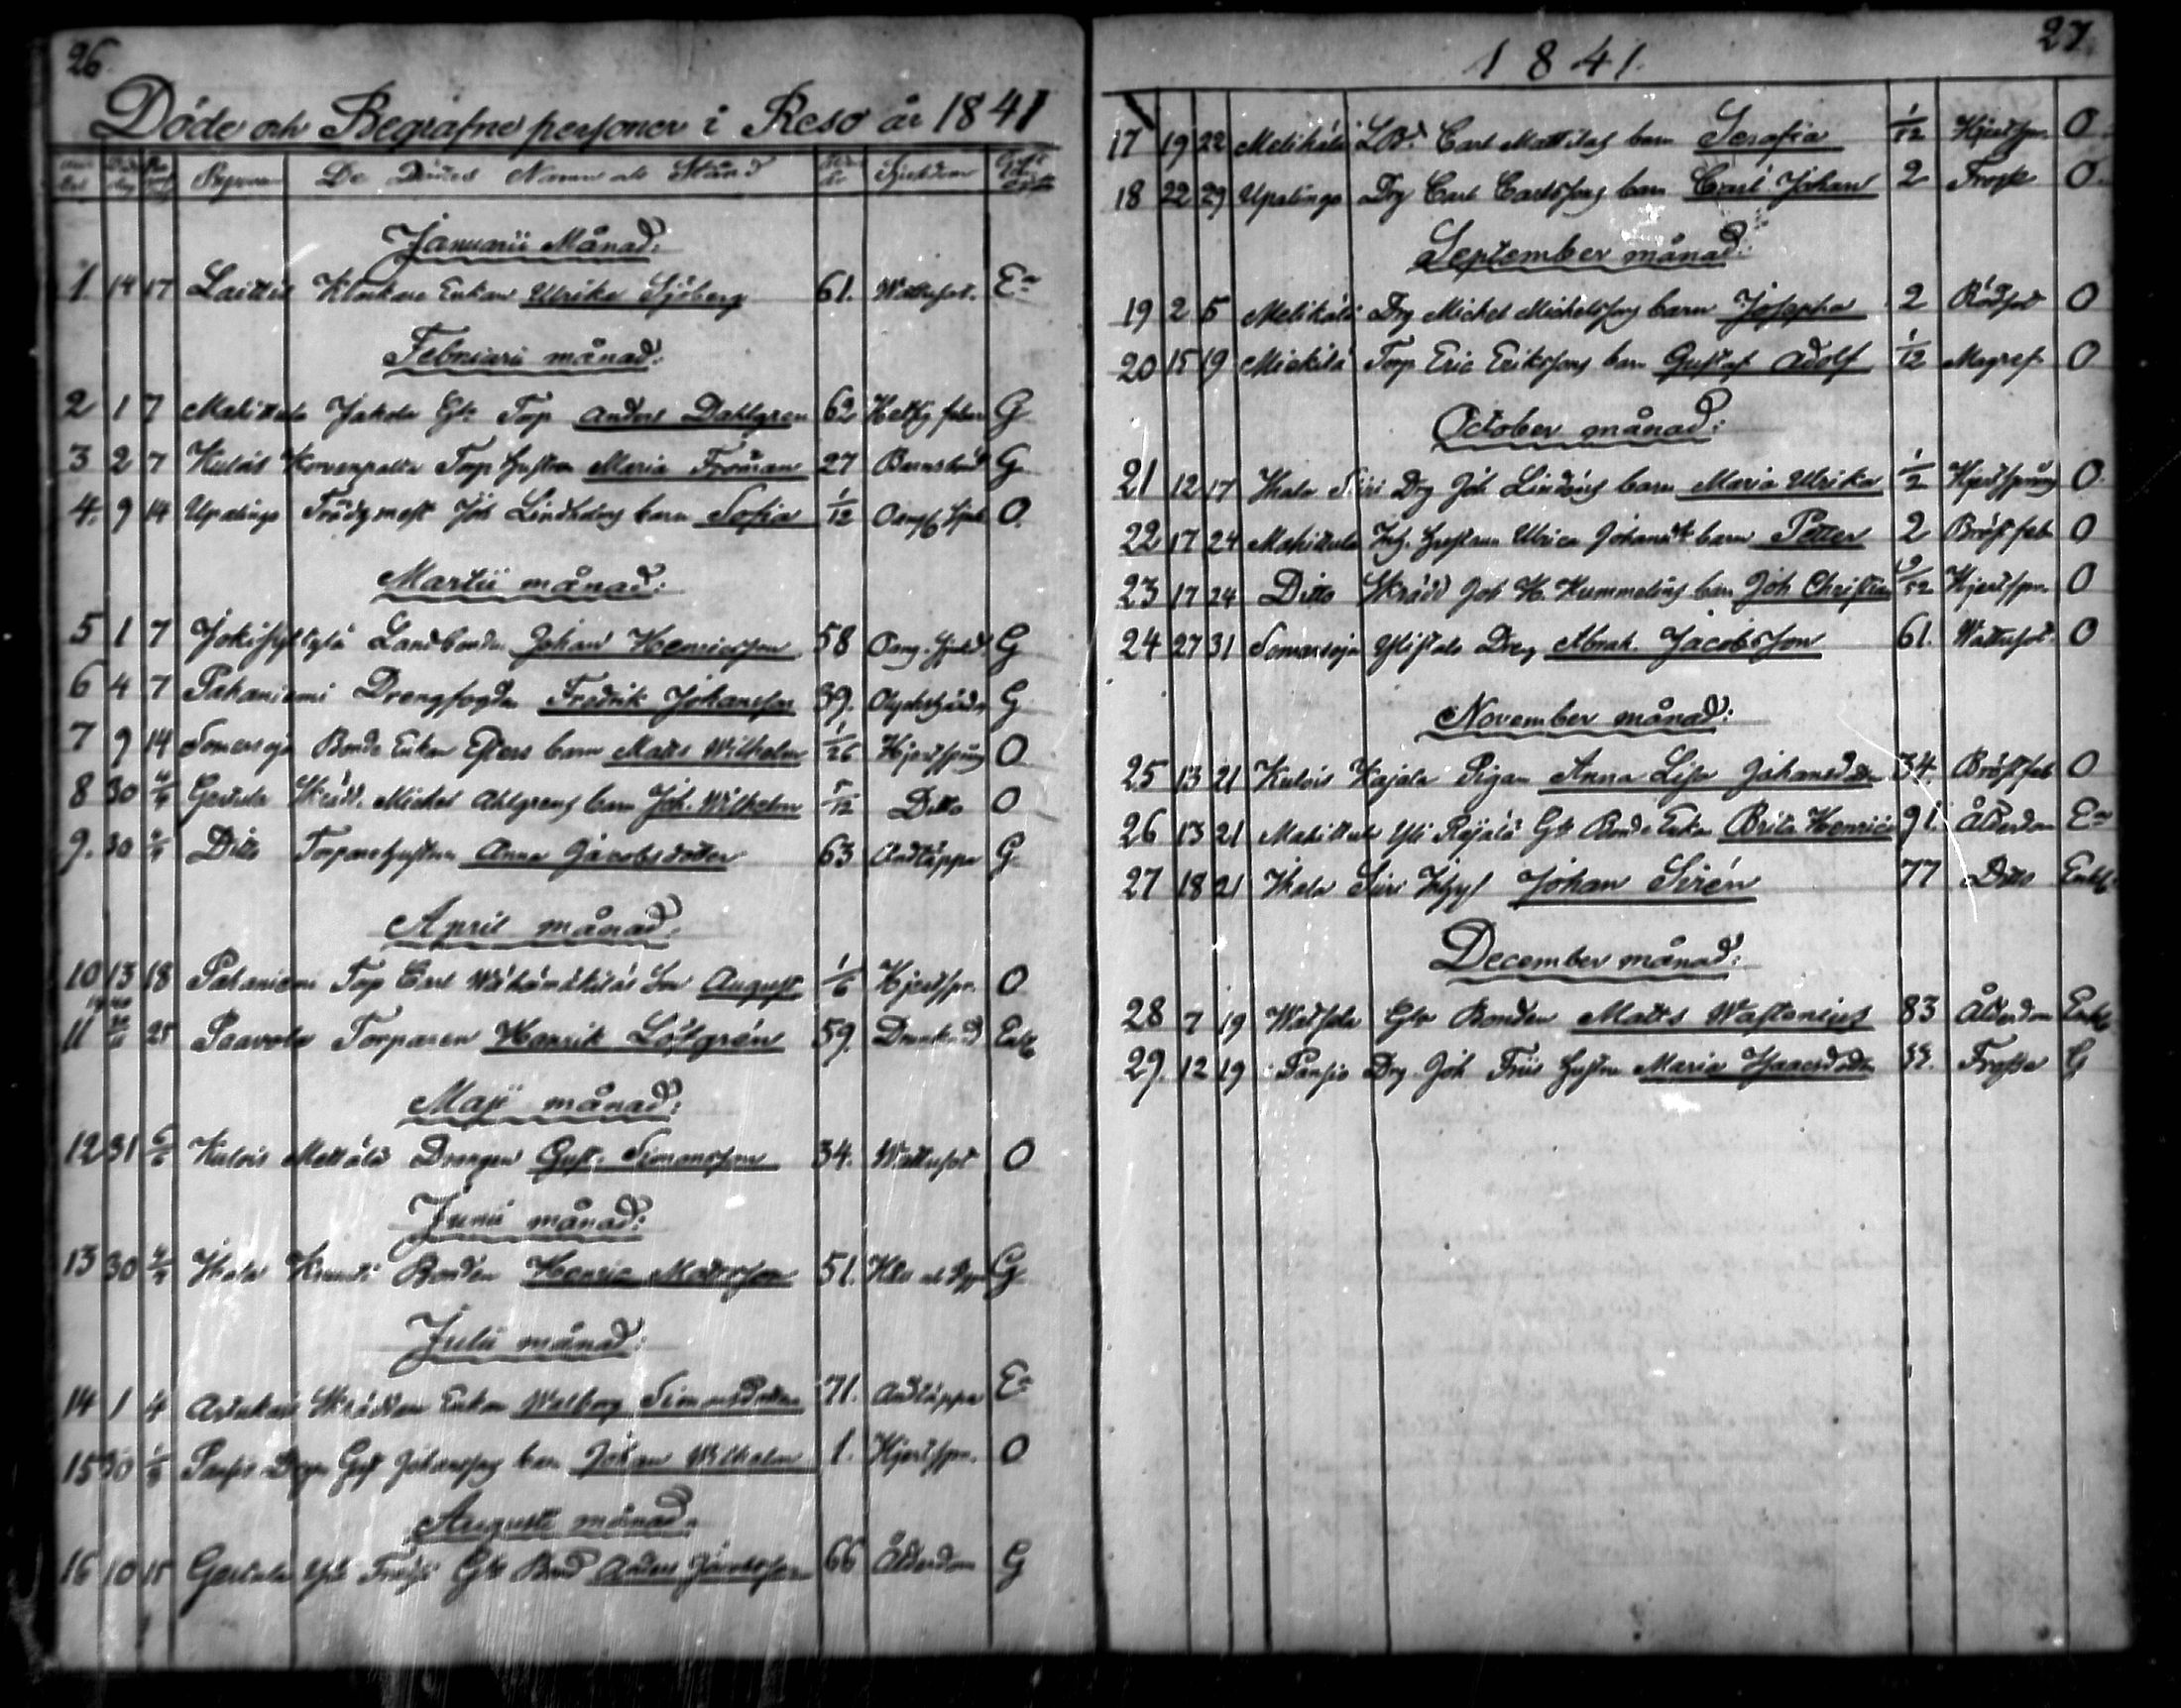 26
Döde och Begrafne personer i Reso år 1841
De Dödes Namn och Stånd
Januarii Månad:
1. 14 17 Laittis Klockare Enkan Ulrika Sjöberg 61. Wattusot. Ea
Februarii månad:
2 1 7 Mahittula Jakola Gle Torp Anders Dahlgren 62 Hetsig feber G
3 2 7 Kulois Korvenpalta Torp hustru Maria Froman 27 Barnsbörd G
4. 9 14 Upalinge Trädgmest Joh Lindholms barn Sofia 1/12 O.
Martii månad:
5 1 7 Landbonden Johan Henricsson 58 G
6 4 7 Pahaniemi Drengfogden Fredrik Johansson 39. Olyckshändn G
7 9 14 Somersoja Bonde Enkan Esters barn Matts Wilhelm 1/26 Hjertspång O
8 30 4/4 Gertula Skrädd. Michel Ahlgrens barn Joh. Wilhelm 5/12 Ditto O
9. 30 4/4 Ditto Torparehustrun Anna Jacobsdotter 63 Andtäppa G
April månad:
10 13 18 Pahaniemi Torp Carl Son August 1/6 Hjertspr. O
11 25 Paavola Torparen Henrik Löfgrén 59. Drunknad Enkl
Maji månad:
12 31 6/6 Kulois Mettälä Drengen Gust. Simonsson 34. Wattusot O
Junii månad:
13 30 4/7 Ihala Bonden Henric Mattsson 51. G
Julii månad:
14 1 4 Artukais Skräddare Enkan Walborg Simonsdotter 71. Andtäppa Ea
15 30 1/8 Pansio Drgn Gust Johanssons barn Johan Wilhelm 1. Hjertspr. O
Augusti månad:
16 10 15 Gertula Gle Bond Anders Jacobsson 66 Ålderdom G
1841.
27
17 19 22 Melikälä LBd. Carl Mattilas barn Serafia 1/12 Hjertspr. O
18 22 29 Upalinge Drg Carl Carlssons barn Carl Johan 2 Frossa O.
September månad:
19 2 5 Melikälä Drg Michel Michelssons barn Josepha 2 Rödsot O
20 15 19 Mickilä Torp Eric Erikssons barn Gustaf Adolf 1/12 Magref. O
October månad:
21 12 17 Ihala Siiri Drg Joh Lindens barn Maria Ulrika 1/2 Hjertspång O.
22 17 24 Mahittula Inh. hustrun Ulrica Johansdr barn Petter 2 Bröstfeb O
23 17 24 Ditto Skrädd Joh H. Hummelins barn Joh Christian Hjertspr. O
24 27 31 Somersoja Ylistalo Dreng Abrah. Jacobsson 61. Wattusot O
November månad:
25 13 21 Kulois Kajala Pigan Anna Lisa Johansdotter 34. Bröstfeb O
26 13 21 Mahittula Yli Räjälä Gle Bonde Enkan Brita Henrics 91. Ålderdom Ea
27 18 21 Ihala Siiri Inhys Johan Sirén 77 Ditto Enkl.
December månad:
28 7 19 Watsela Gle Bonden Matts Wastenius 83 Ålderdom Enkl
29. 12 19 Pansio Drg Joh Friis hustru Maria Isaacsdotter 33. Frossa G